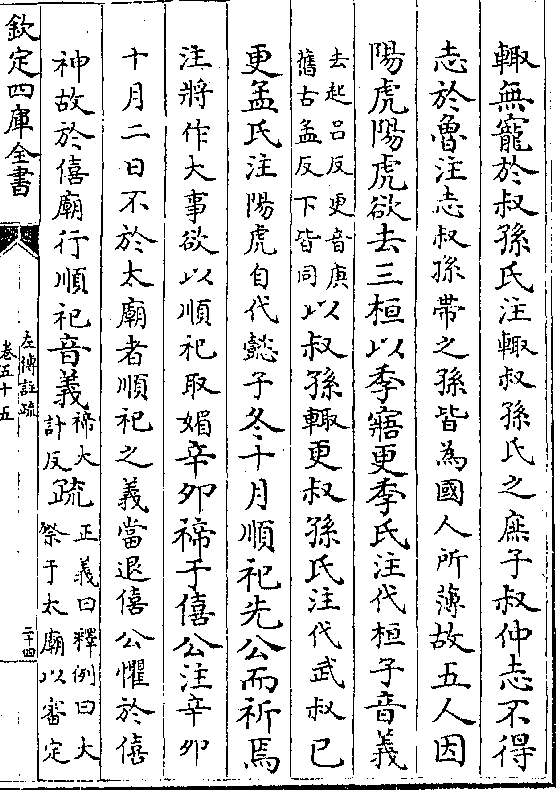 輙無寵於叔孫氏注輙叔孫氏之庶子叔仲志不得
志於魯注志叔孫帶之孫皆為國人所薄故五人因
陽虎陽虎欲去三桓以季寤更季氏注代桓子音義
去起呂反更音庚
舊古孟反下皆同以叔孫輙更叔孫氏注代武叔已
更孟氏注陽虎自代懿子冬十月順祀先公而祈焉
注將作大事欲以順祀取媚辛夘禘于僖公注辛夘
十月二日不於太廟者順祀之義當退僖公懼於僖
神故於僖廟行順祀音義禘大
計反疏正義曰釋例曰大
祭于太廟以審定
欽定四庫全書
左傳註疏
卷五十五
二十四